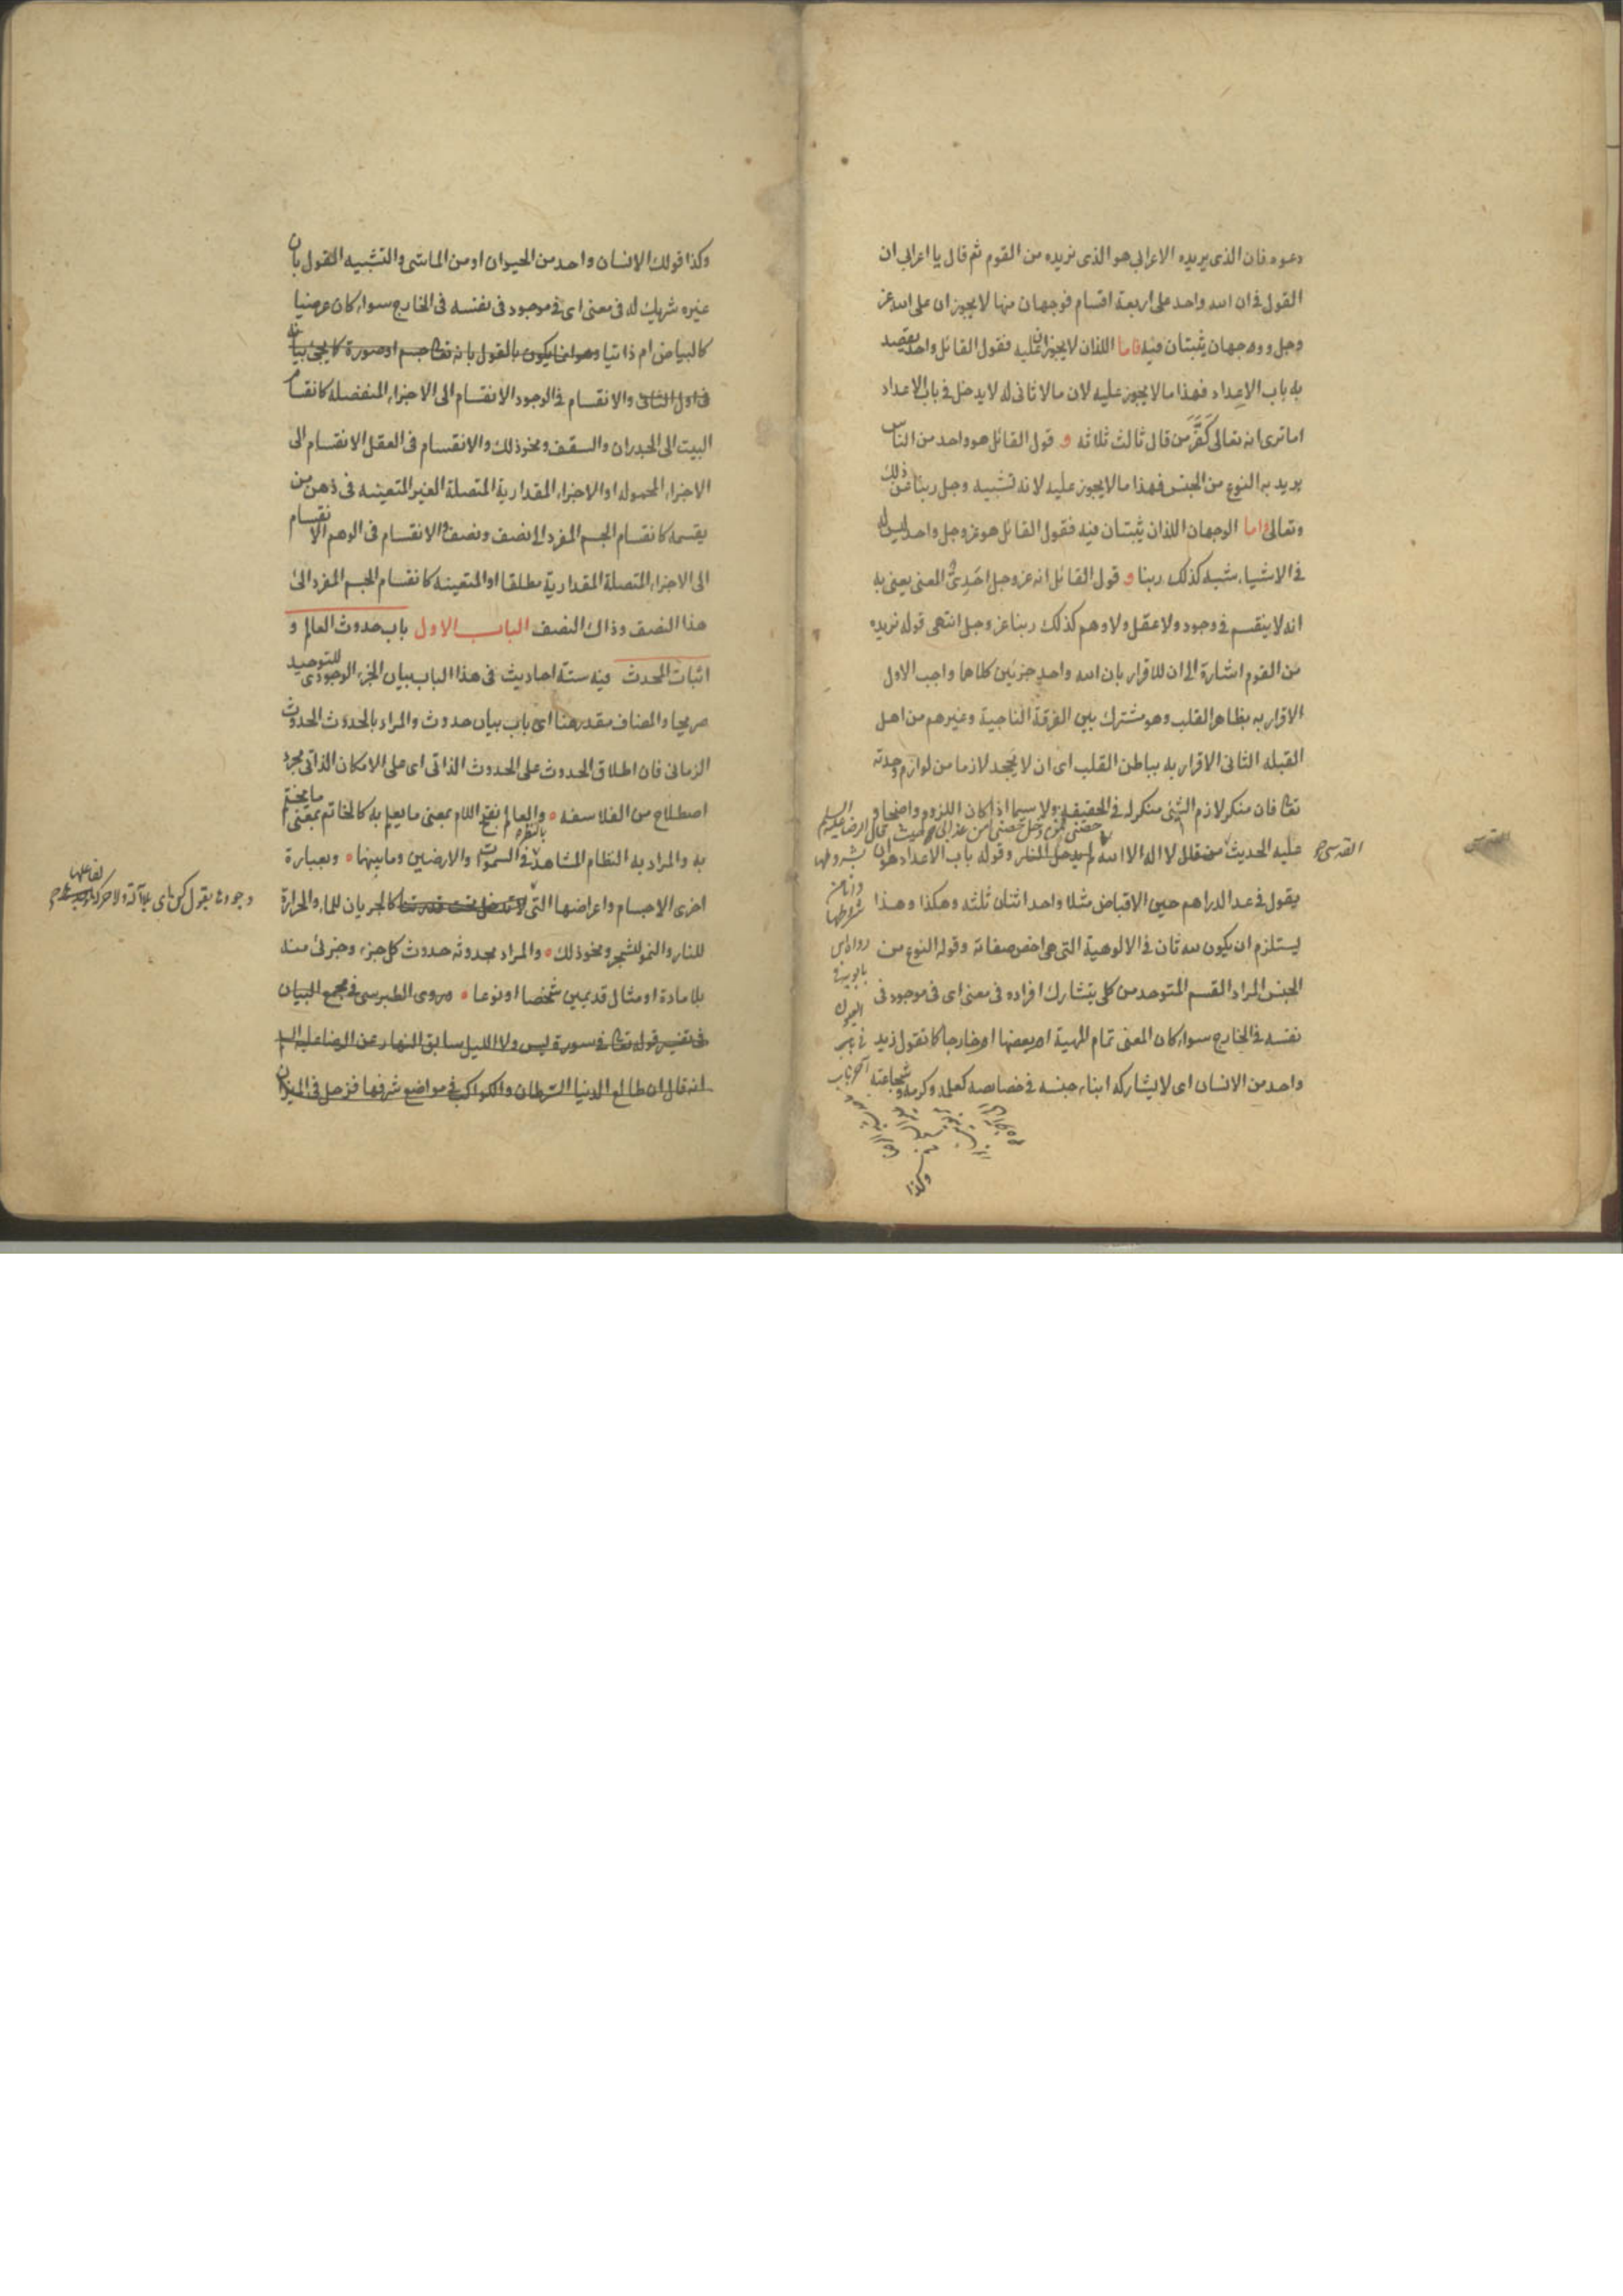 دعوه فان الذى يريده الاعرابى هو الذى نريده من القوم ثم قال يا اعرابى ان
القول فى ان الله واحد على اربعة اقسام فوجهان منها لا يجوزان على الله عز
وجل ووجهان يثبتان فيه فاما اللذان لا يجوزان عليه فقول القائل واحد يقصد
به باب الاعداد فهذا ما لا يجوز عليه لان ما لا ثانى له لا يدخل فى باب الاعداد
اما ترى انه تعالى كَفَّرَ من قال ثالث ثلاثه و قول القائل هو واحد من الناس
يريد به النوع من الجنس فهذا ما لا يجوز عليه لانه تشبيه وجل ربنا عن ذلك
وتعالى واما الوجهان اللذان يثبتان فيه فقول القائل هو عز وجل واحد ليس له
فى الاشياء شبه كذلك ربنا و قول القائل انه عز وجل اَحَدِىُّ المعنى يعنى به
انه لا ينقسم فى وجود ولا عقل ولا وهم كذلك ربنا عز وجل انتهى قوله نريده
من القوم اشارة الى ان للاقرار بان الله واحد جزئين كلاهما واجب الاول
الاقرار به بظاهر القلب وهو مشترك بين الفرقة الناجية وغيرهم من اهل
القبله الثانى الاقرار به بباطن القلب اى ان لا يجحد لازما من لوازم وحدته
تعا فان منكر لازم الشئ منكر له فى الحقيقه ولا سيما اذا كان اللزوم واضحا و
حصنى فمن دخل حصنى امن عذابى حيث قال الرضا عليه السلم
عليه الحديث من قال لا اله الا الله لم يدخل النار وقوله باب الاعداد هو ان
القدسى
بشروطها
وانا من
شروطها
رواه ابن
بابويه فى
يقول فى عد الدراهم حين الاقباض مثلا واحد اثنان ثلثه وهكذا وهذا
يستلزم ان يكون لله ثان فى الالوهية التى هى اخص صفاته وقوله النوع من
الجنس المراد القسم المتوحد من كلى يتشارك افراده فى معنى اى فى موجود فى
نفسه فى الخارج سواء كان المعنى تمام المهية او بعضها او خارجا كما تقول زيد
واحد من الانسان اى لا يشاركه ابناء جنسه فى خصائصه كعلمه وكرمه وشجاعته
وكذا
وكذا قولك الانسان واحد من الحيوان او من الماشى والتشبيه القول بان
غيره شريك له فى معنى اى فى موجود فى نفسه فى الخارج سواء كان عرضيا
كالبياض ام ذاتيا وهو انما يكون بالقول بانه تعا جسم او صورة كما يجئ بيانه
فى اول الثانى والانقسام فى الوجود الانقسام الى الاجزاء المنفصلة كانقسام
البيت الى الجدران والسقف ونحو ذلك والانقسام فى العقل الانقسام الى
الاجزاء المحموله او الاجزاء المقدارية المتصلة الغير المتعينه فى ذهن من
يقسمه كانقسام الجسم المفرد الى نصف ونصف والانقسام فى الوهم الانقسام
الى الاجزاء المتصلة المقدارية مطلقا او المتعينه كانقسام الجسم المفرد الى
هذا النصف وذاك النصف الباب الاول باب حدوث العالم و
اثبات المحدث فيه ستة احاديث فى هذا الباب بيان الجزء الوجودى للتوحيد
صريحا والمضاف مقدر هنا اى باب بيان حدوث والمراد بالحدوث الحدوث
الزمانى فان اطلاق الحدوث على الحدوث الذاتى اى على الامكان الذاتى مجرد
اصطلاح من الفلاسفه والعالم بفتح اللام بمعنى ما يعلم به كالخاتم بمعنى ما يختم
به والمراد به النظام المشاهد فى السموات والارضين وما بينها وبعبارة
اخرى الاجسام واعراضها التى لا تدخل تحت قدرتنا كالجريان للماء والحرارة
للنار والنمو للشجر ونحو ذلك والمراد بحدوثه حدوث كل جزء وجزئى منه
بلا مادة او مثال قديمين شخصا او نوعا وروى الطبرسى فى مجمع البيان
فى تفسير قوله تعا فى سورة يس ولا الليل سابق النهار عن الرضا عليه السلم
انه قال ان طالع الدنيا السرطان والكواكب فى مواضع شرفها فزحل فى الميزان